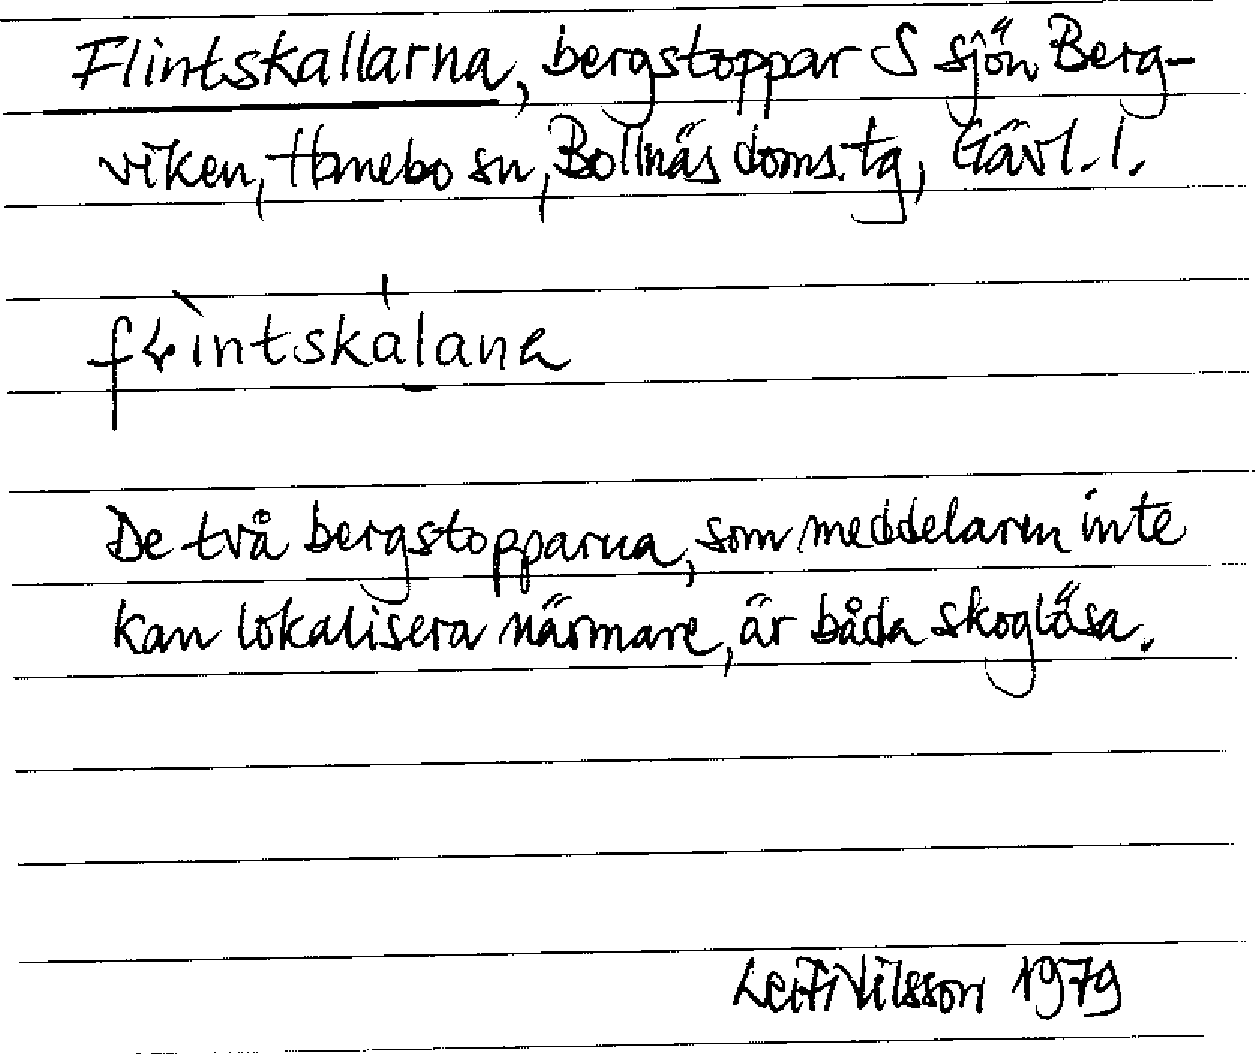 Flintskallarna, bergstoppar S sjön Berg-
viken, Hanebo sn, Bollnäs doms. tg, Gävl. l.
De två bergstopparna, som meddelaren inte
kan lokalisera närmare, är båda skoglösa.
Leif Nilsson 1979